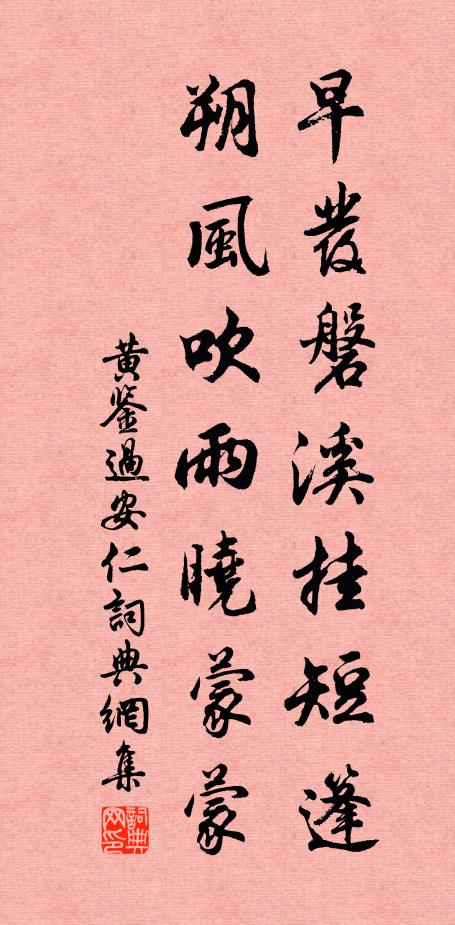 早發磐溪挂短篷
朔風吹雨曉蒙蒙
黄鉴過安仁詞典網集
詞典网印